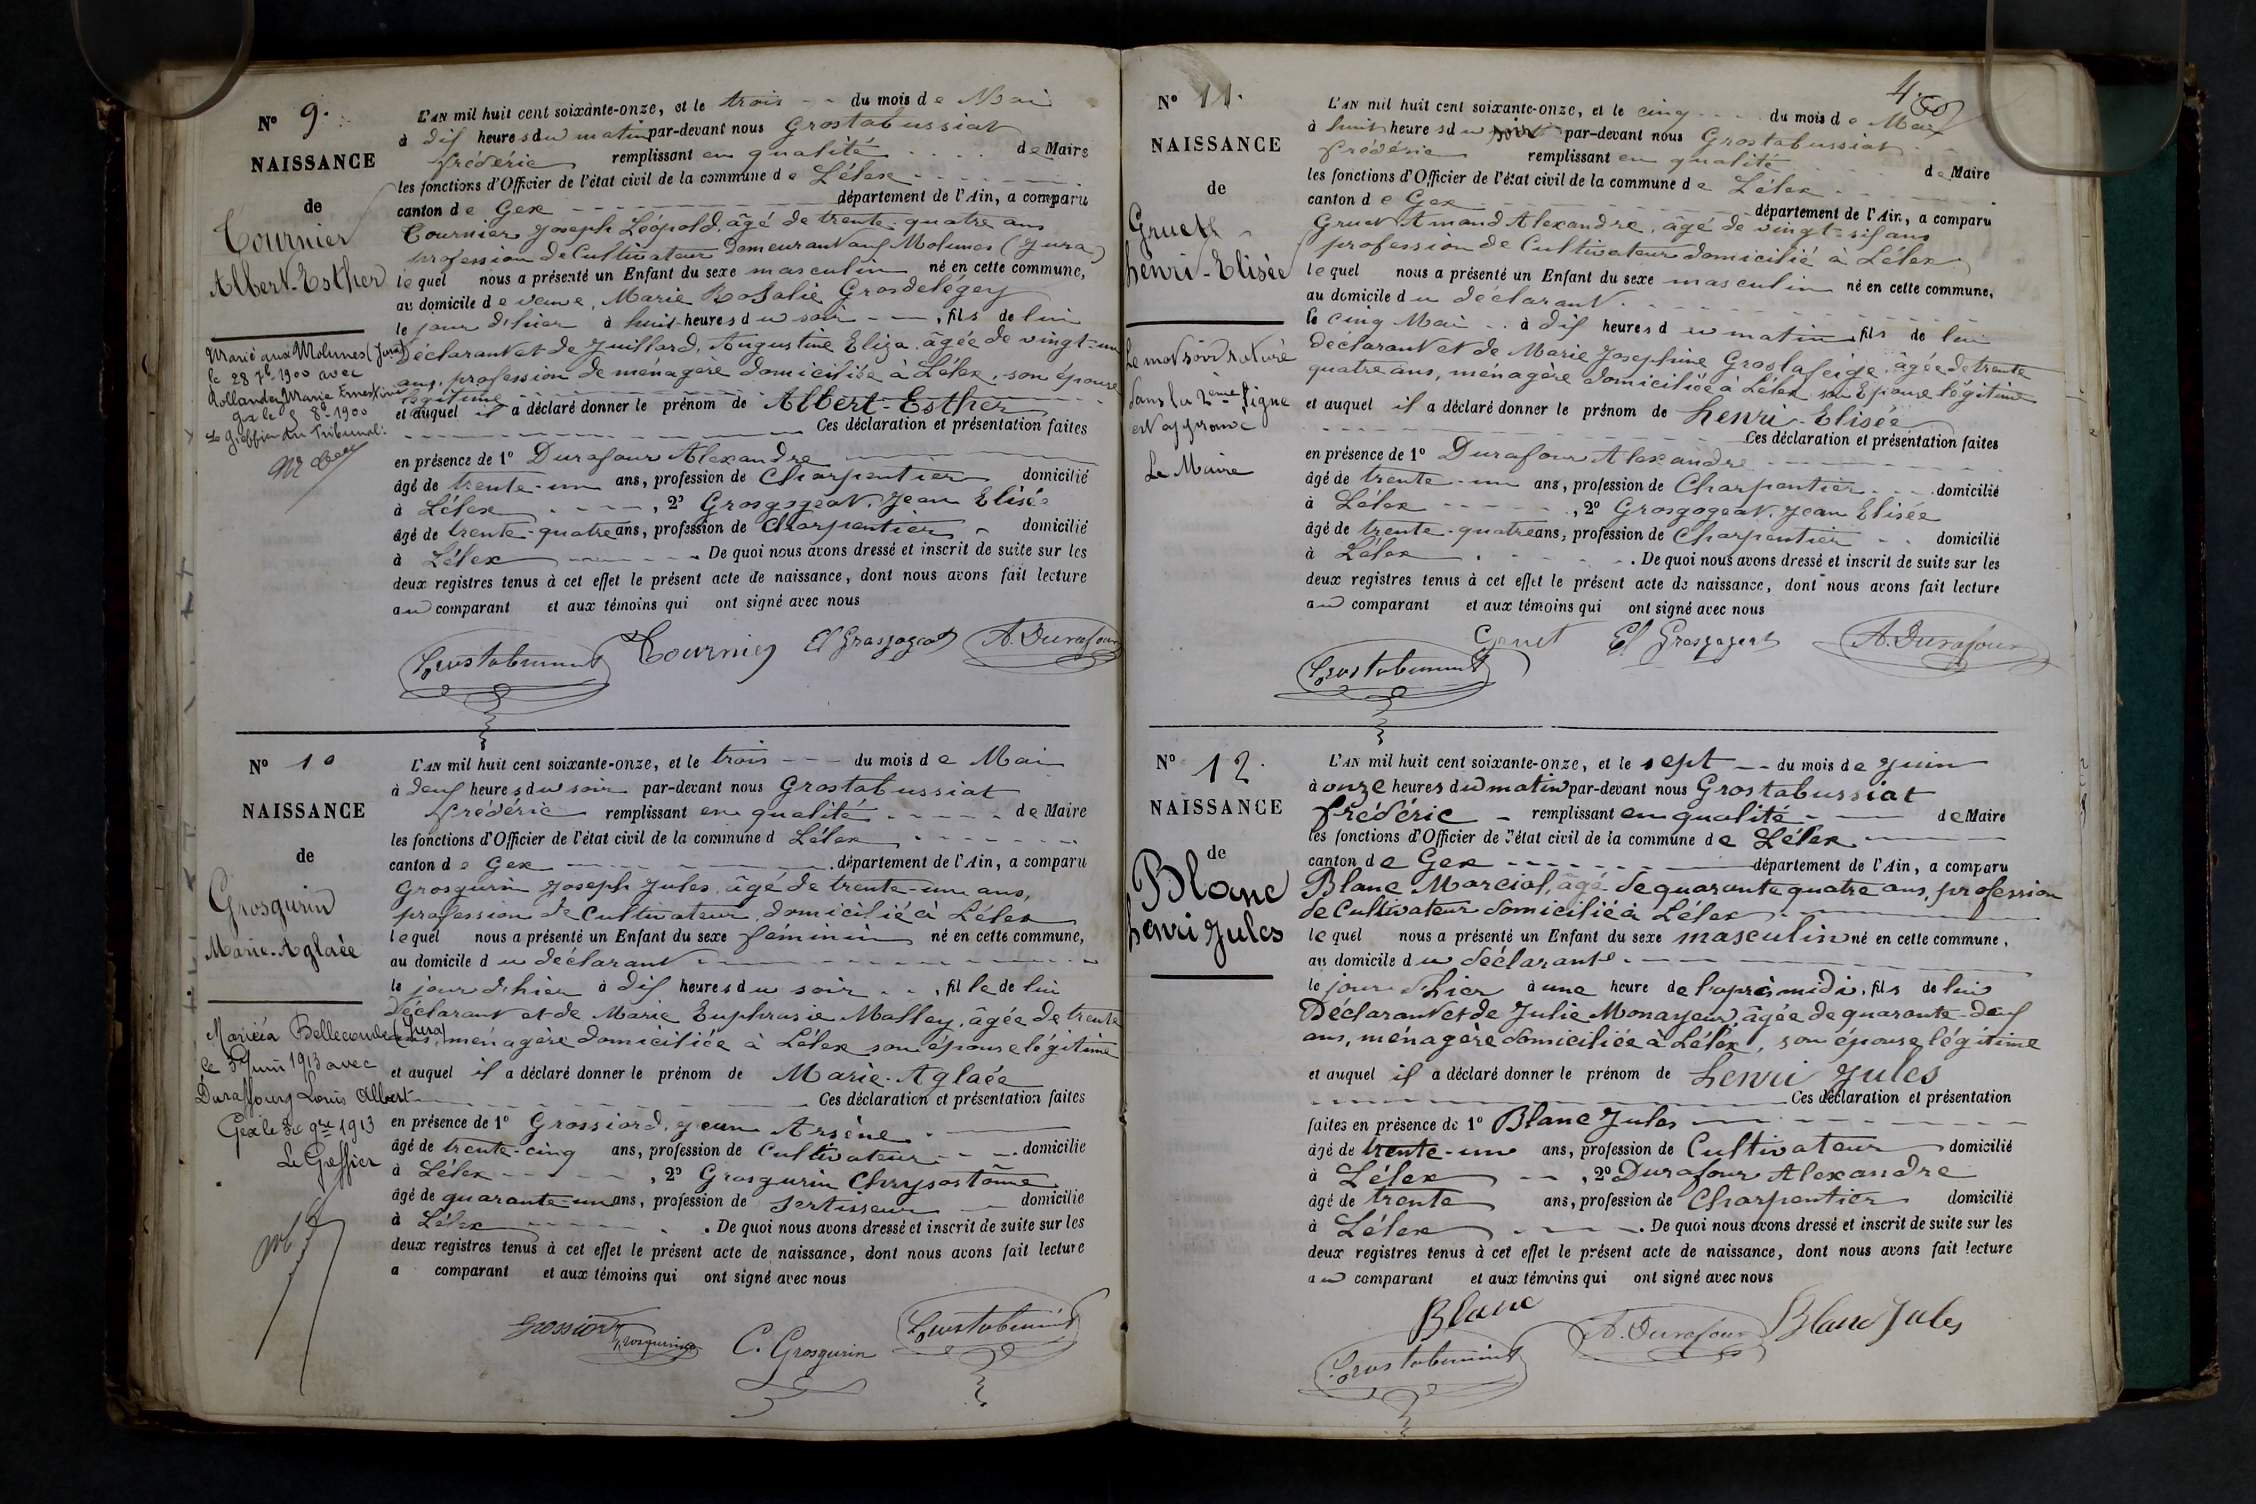 N° 9.
NAISSANCE
de
Tournier
Albert-Esther
Marié aux Molunes (Jura)
le 28 7bre 1900 avec
Rollandez Marie Ernestine
Gex le 5 8bre 1900
Le Greffier du Tribunal:
L'AN mil huit cent soixante-onze, et le trois du mois de Mai
à dix heures du matin par-devant nous Grostabussiat
frédéric remplissant en qualité de Maire
les fonctions d'Officier de l'état civil de la commune de Lélex
canton de Gex département de l'Ain, a comparu
Tournier Joseph Léopold, âgé de trente-quatre ans
profession de Cultivateur demeurant aux Molunes (Jura)
lequel nous a présenté un Enfant du sexe masculin né en cette commune,
au domicile de veuve, Marie Rosalie Grosdelégey
le jour d'hier à huit heures du soir, fils de lui
Déclarant et de Juillard, Augustine Eliza, âgée de vingt-un
ans, profession de ménagère domiciliée à Lélex, son épouse
légitime
et auquel il a déclaré donner le prénom de Albert-Esther
Ces déclaration et présentation faites
en présence de 1° Durafour Alexandre
âgé de trente-un ans, profession de Charpentier domicilié
à Lélex, 2° Grosgogeat, Jean Elisée
âgé de trente-quatre ans, profession de Charpentier domicilié
à Lélex. De quoi nous avons dressé et inscrit de suite sur les
deux registres tenus à cet effet le présent acte de naissance, dont nous avons fait lecture
au comparant et aux témoins qui ont signé avec nous
Grostabussiat Tournier El Grosgogeat A. Durafour
N° 10
NAISSANCE
de
Grosgurin
Marie-Aglaée
Mariée à Bellecombe (Jura)
le 5 Juin 1913 avec
Duraffourg Louis Albert
Gex le 30 9bre 1913
Le Greffier
L'AN mil huit cent soixante-onze, et le trois du mois de Mai
à deux heures du soir par-devant nous Grostabussiat
frédéric remplissant en qualité de Maire
les fonctions d'Officier de l'état civil de la commune d Lélex
canton de Gex département de l'Ain, a comparu
Grosgurin Joseph Jules, âgé de trente-un ans,
profession de Cultivateur, domicilié à Lélex
lequel nous a présenté un Enfant du sexe féminin né en cette commune,
au domicile du déclarant
le jour d'hier à dix heures du soir, fille de lui
Déclarant et de Marie Euphrasie Malley, âgée de trente
ans, ménagère domiciliée à Lélex son épouse légitime
et auquel il a déclaré donner le prénom de Marie-Aglaée
Ces déclaration et présentation faites
en présence de 1° Grossiord, Jean Arsène
âgé de trente-cinq ans, profession de Cultivateur domicilié
à Lélex, 2° Grosgurin Chrysostôme
âgé de quarante-un ans, profession de Sertisseur domicilié
à Lélex. De quoi nous avons dressé et inscrit de suite sur les
deux registres tenus à cet effet le présent acte de naissance, dont nous avons fait lecture
a comparant et aux témoins qui ont signé avec nous
Grossiord Grosgurin C. Grosgurin Grostabussiat
4.
N° 11.
NAISSANCE
de
Gruet
henri-Elisée
Le mot soir raturé
dans la 2ème ligne
est approuvé
Le Maire
L'AN mil huit cent soixante-onze, et le cinq du mois de Mai
à huit heures du soir par-devant nous Grostabussiat
frédéric remplissant en qualité de Maire
les fonctions d'Officier de l'état civil de la commune de Lélex
canton de Gex département de l'Ain, a comparu
Gruet Amand Alexandre, âgé de vingt-six ans
profession de Cultivateur domicilié à Lélex
lequel nous a présenté un Enfant du sexe masculin né en cette commune,
au domicile du déclarant
le cinq Mai à dix heures du matin, fils de lui
déclarant et de Marie Josephine Groslafeige, âgée de trente
quatre ans, ménagère domiciliée à Lélex son Epouse légitime
et auquel il a déclaré donner le prénom de henri-Elisée
Ces déclaration et présentation faites
en présence de 1° Durafour Alexandre
âgé de trente-un ans, profession de Charpentier domicilié
à Lélex, 2° Grosgogeat, Jean Elisée
âgé de trente-quatre ans, profession de Charpentier domicilié
à Lélex. De quoi nous avons dressé et inscrit de suite sur les
deux registres tenus à cet effet le présent acte de naissance, dont nous avons fait lecture
au comparant et aux témoins qui ont signé avec nous
Grostabussiat Gruet El Grosgogeat A. Durafour
N° 12.
NAISSANCE
de
Blanc
henri Jules
L'AN mil huit cent soixante-onze, et le sept du mois de Juin
à onze heures du matin par-devant nous Grostabussiat
frédéric remplissant en qualité de Maire
les fonctions d'Officier de l'état civil de la commune de Lélex
canton de Gex département de l'Ain, a comparu
Blanc Marcial, âgé de quarante quatre ans, profession
de Cultivateur domicilié à Lélex
lequel nous a présenté un Enfant du sexe masculin né en cette commune,
au domicile du déclarant
le jour d'hier à une heure de l'après midi, fils de lui
Déclarant et de Julie Monayeur, âgée de quarante-deux
ans, ménagère domiciliée à Lélex, son épouse légitime
et auquel il a déclaré donner le prénom de henri Jules
Ces déclaration et présentation
faites en présence de 1° Blanc Jules
âgé de trente-un ans, profession de Cultivateur domicilié
à Lélex, 2° Durafour Alexandre
âgé de trente ans, profession de Charpentier domicilié
à Lélex. De quoi nous avons dressé et inscrit de suite sur les
deux registres tenus à cet effet le présent acte de naissance, dont nous avons fait lecture
au comparant et aux témoins qui ont signé avec nous
Blanc A. Durafour Blanc Jules
Grostabussiat